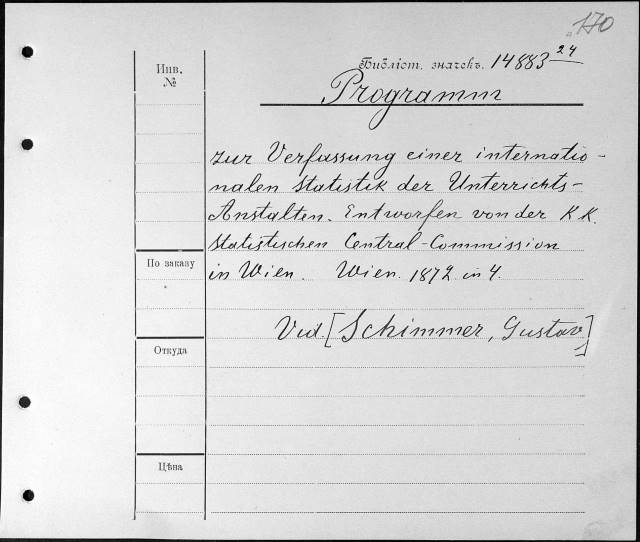 170
Инв. №
Библіот. значекъ. 14883 24
Programm
zur Verfassung einer internatio-
nalen Statistik der Unterrichts-
Anstalten. Entworfen von der K. K.
Statistischen Central-Commission
По заказу
in Wien. Wien. 1872. in 4.
Vid. [Schimmer, Gustav]
Откуда
Цѣна